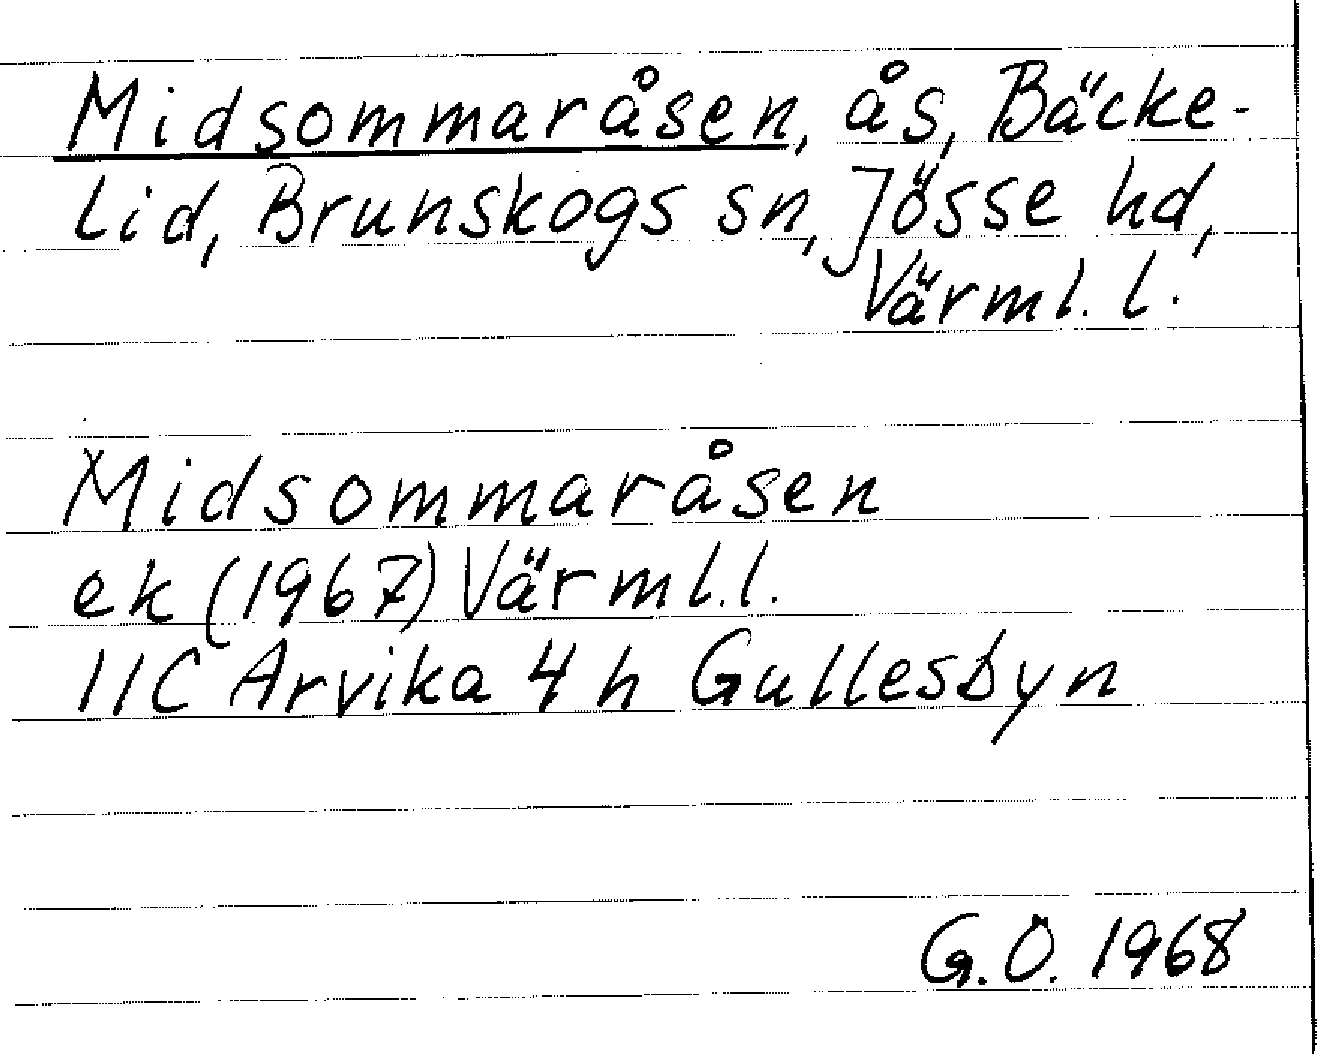 Midsommaråsen, ås, Bäcke-
lid, Brunskogs sn, Jösse hd,
Värml. l.
Midsommaråsen
ek (1967) Värml. l.
11C Arvika 4 h Gullesbyn
G.O. 1968